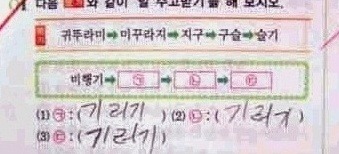 다음 보기 와 같이 말 주고받기를 해 보시오.
보기 귀뚜라미➡미꾸라지➡지구➡구슬➡슬기
비행기➡㉠➡㉡➡㉢
(1) ㉠:(기러기) (2) ㉡:(기러기)
(3) ㉢:(기러기)